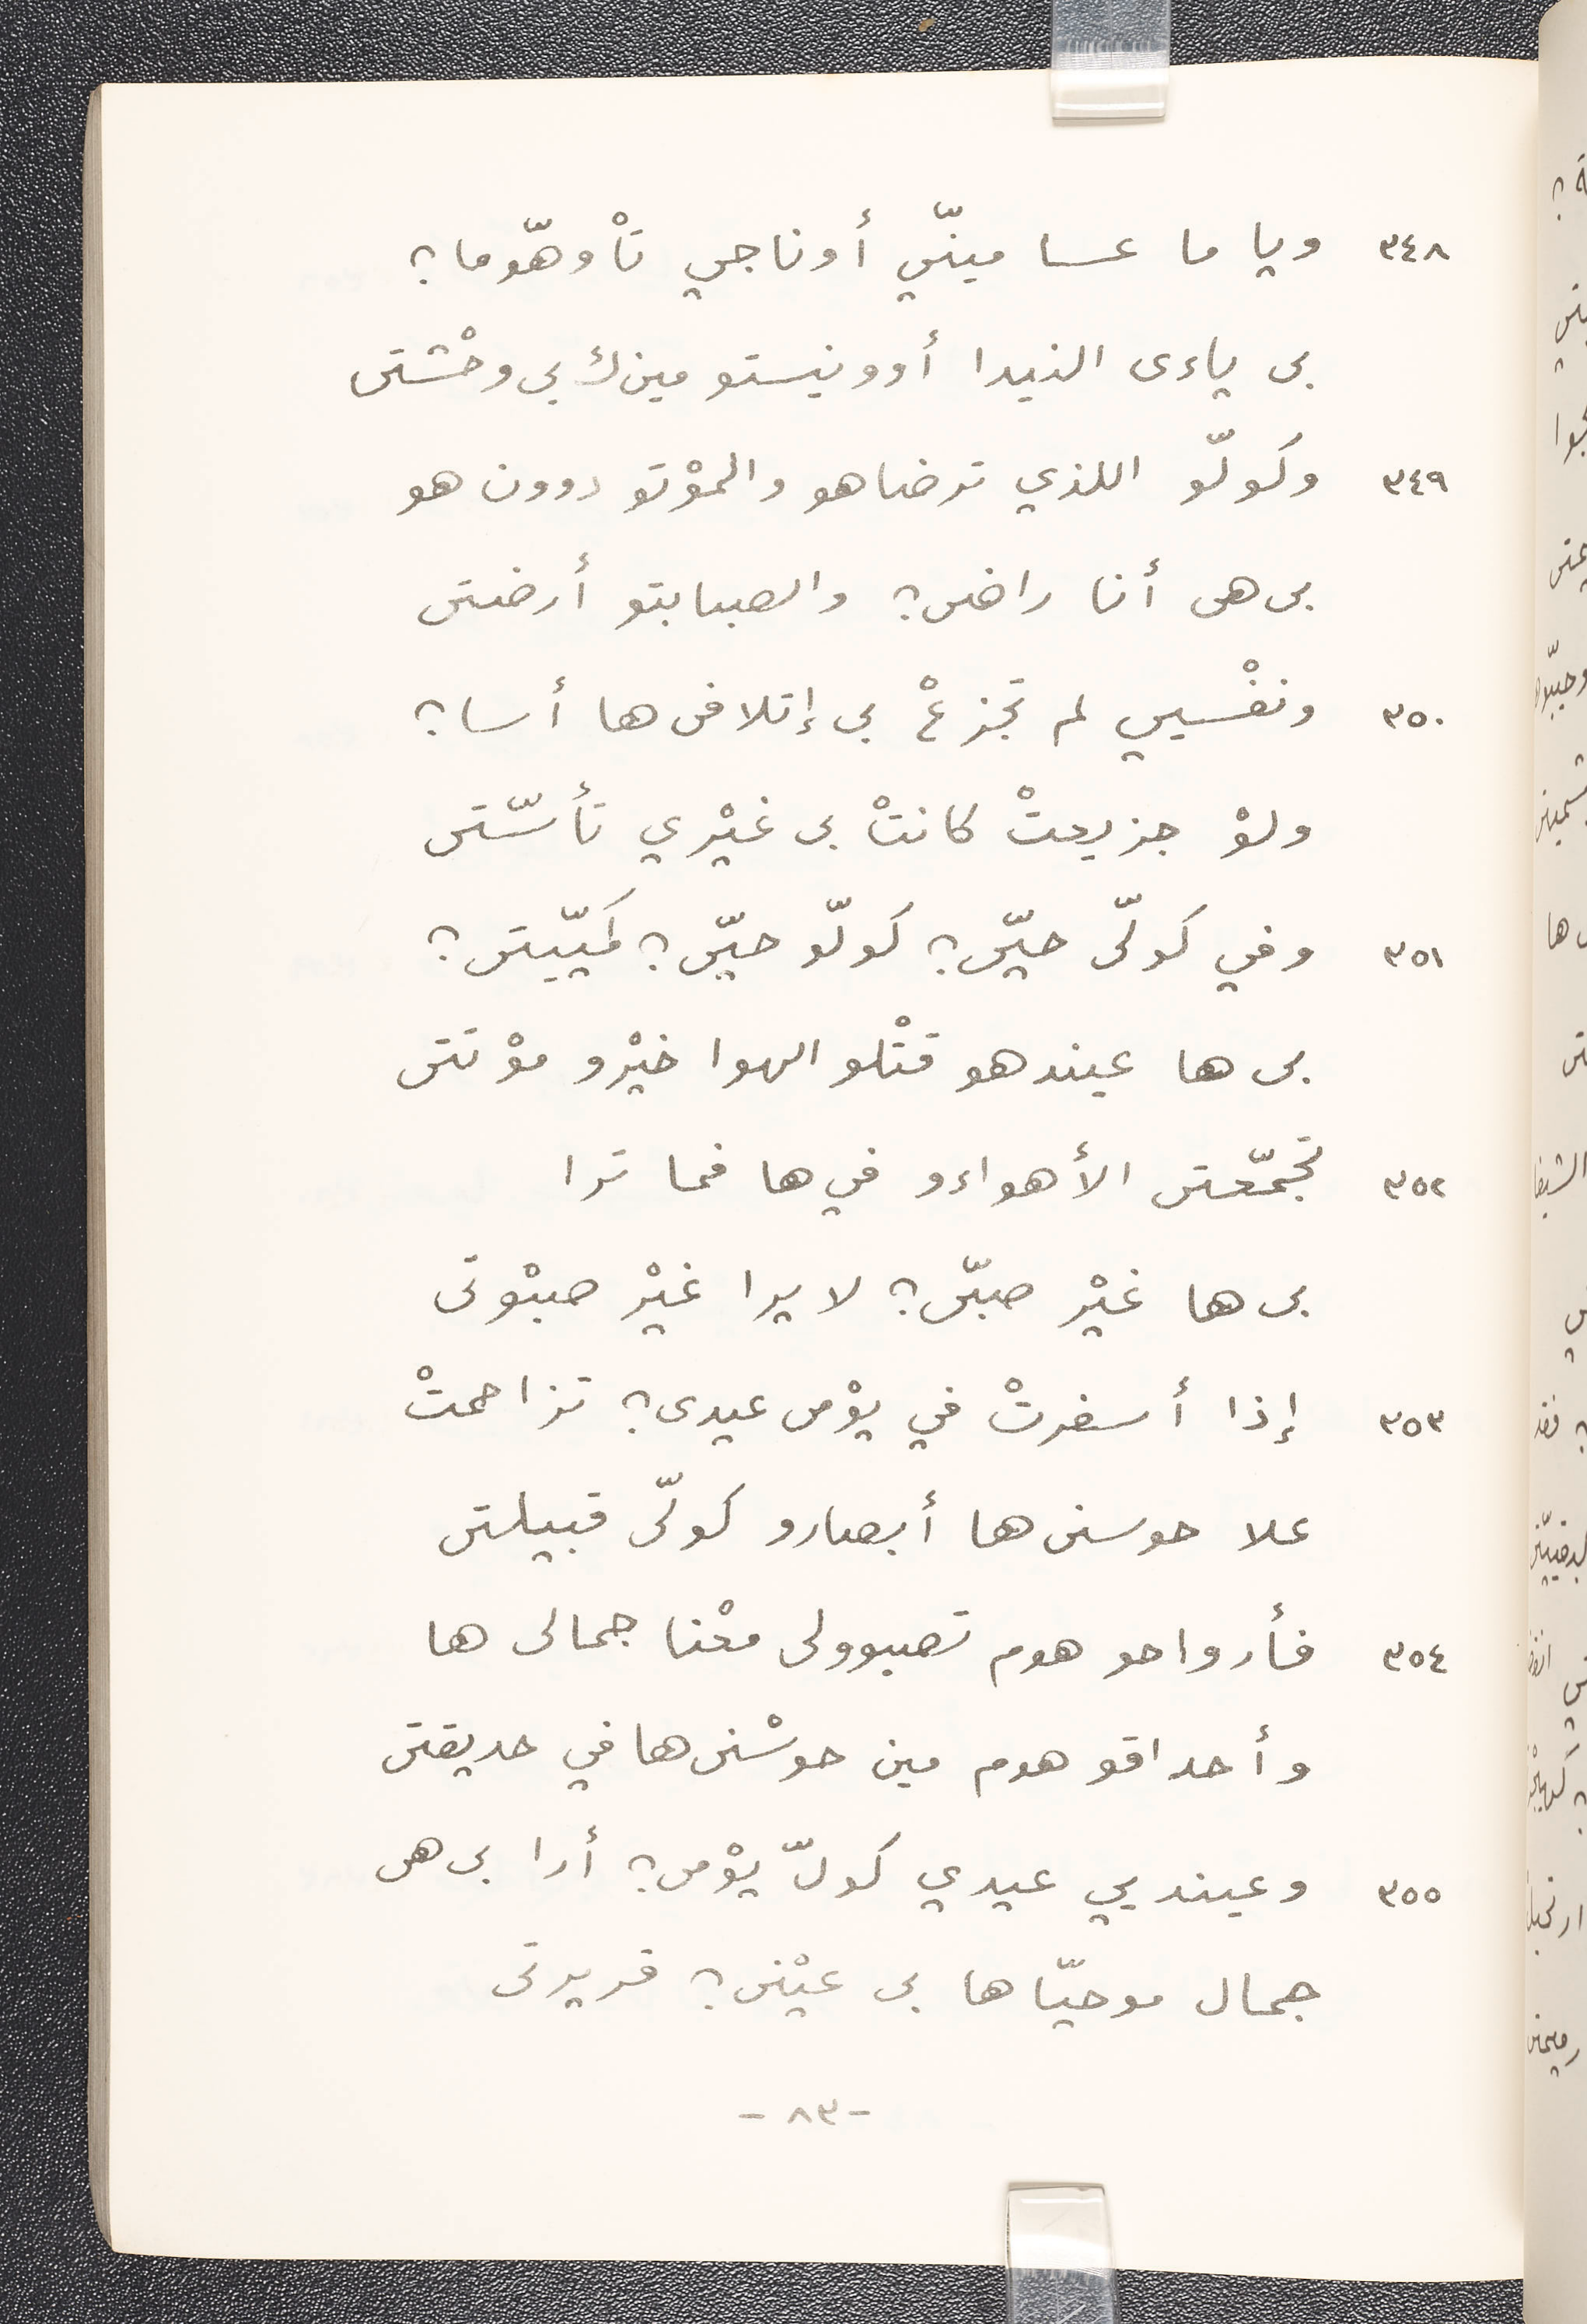 ٣٤٨ ويا ما عسا مينّي أوناجي تاْوهّوما؟
بى ياءى النيدا أوونيستو مينك بى وحْشتى
٣٤٩ وكولّو اللذي ترضاهو والموْتو دوون هو
بى هى أنا راضى؟ والصبابتو أرضتى
٣٥٠ ونفْسيي لم تجزعْ بى إتلافى ها أسا؟
ولوْ جزيعتْ كانتْ بى غيْري تأسّتى
٣٥١ وفي كولّى حيّى؟ كولّو حيّى؟ كميّيتى؟
بى ها عيندهو قتْلو الهوا خيْرو موْتتى
٣٥٢ تجمّعتى الأهواءو في ها فما ترا
بى ها غيْر صبّى؟ لا يرا غيْر صبْوتى
٣٥٣ إذا أسفرتْ في يوْمى عيدى؟ تزاحمتْ
علا حوسنى ها أبصارو كولّى قبييلتى
٣٥٤ فأرواحو هوم تصبوولى معْنا جمالى ها
وأحداقو هوم مين حوسْنى ها في حديقتى
٣٥٥ وعينديي عيدي كولّ يوْمى؟ أرا بى هى
جمال موحيّا ها بى عيْنى؟ قريرتى
-٨٣-